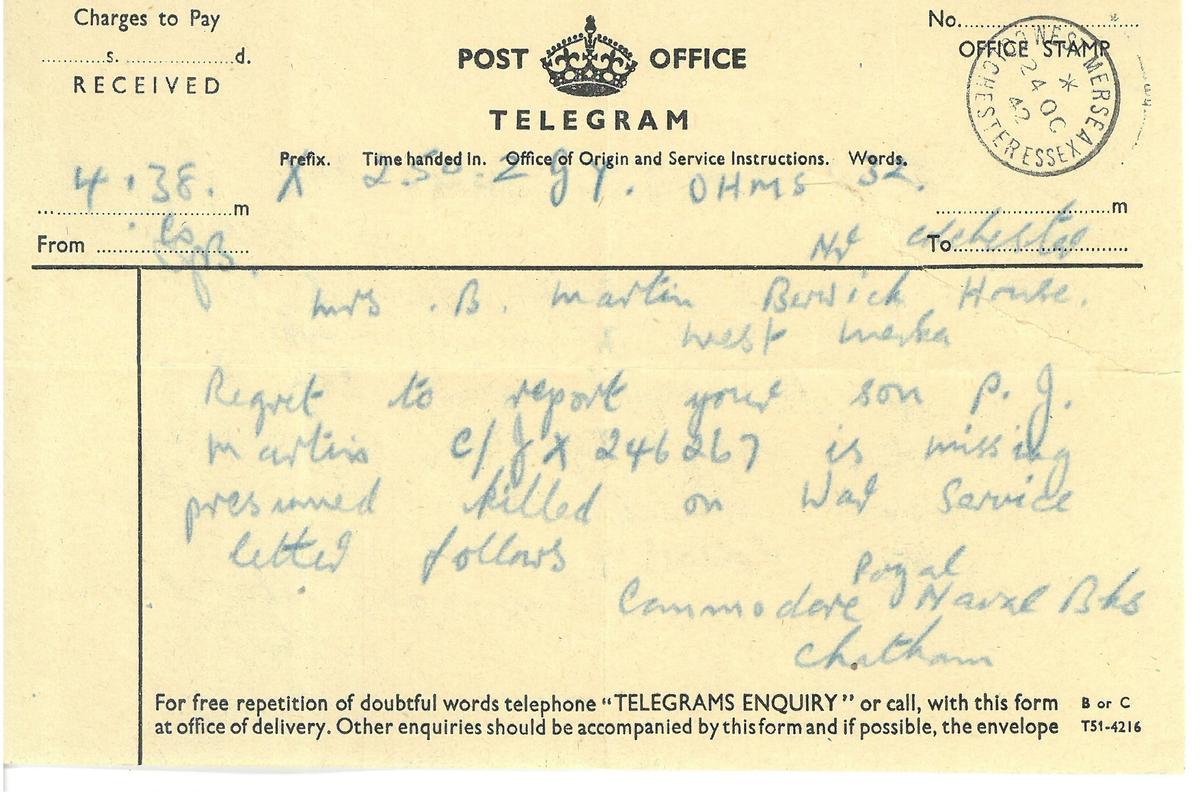 Charges to Pay
s. d.
RECEIVED
POST OFFICE
TELEGRAM
No.
OFFICE STAMP
WEST MERSEA
COLCHESTER ESSEX
24 OC
42
Prefix. Time handed In. Office of Origin and Service Instructions. Words.
4.38. X 2.50. OHMS 32.
m m
From To
Nr Colchester
Mrs. B. Martin Berwick House.
West Mersea
Regret to report your son P. J.
Martin C/JX 246267 is missing
presumed killed on War Service
letter follows
Royal
Commodore Naval Bks
Chatham
For free repetition of doubtful words telephone "TELEGRAMS ENQUIRY" or call, with this form
at office of delivery. Other enquiries should be accompanied by this form and if possible, the envelope
B or C
T51-4216